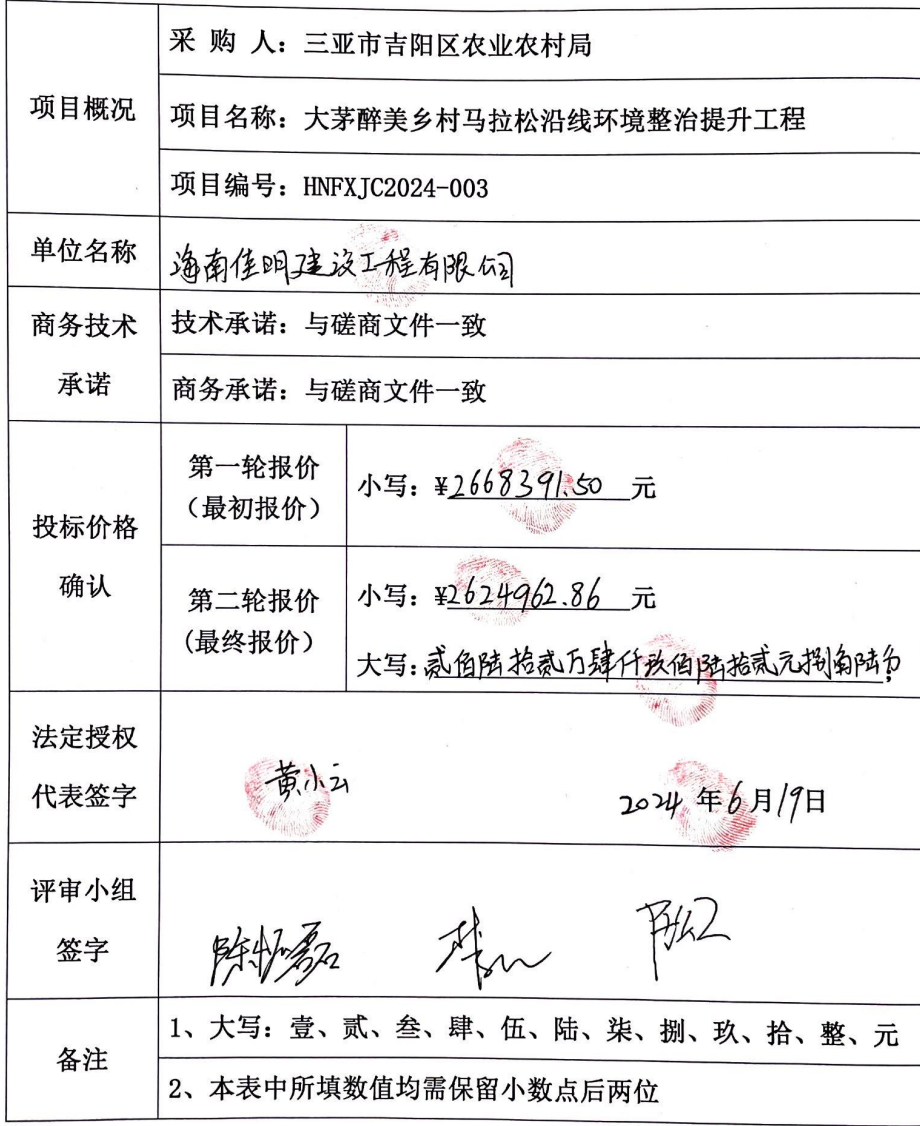 项目概况
采 购 人：三亚市吉阳区农业农村局
项目名称：大茅醉美乡村马拉松沿线环境整治提升工程
项目编号：HNFXJC2024-003
单位名称
海南佳明建设工程有限公司
商务技术
承诺
技术承诺：与磋商文件一致
商务承诺：与磋商文件一致
投标价格
确认
第一轮报价
（最初报价）
小写：¥2668391.50 元
第二轮报价
(最终报价）
小写：¥2624962.86 元
大写：贰佰陆拾贰万肆仟玖佰陆拾贰元捌角陆分
法定授权
代表签字
黄小云
2024 年6月19日
评审小组
签字
备注
1、大写：壹、贰、叁、肆、伍、陆、柒、捌、玖、拾、整、元
2、本表中所填数值均需保留小数点后两位